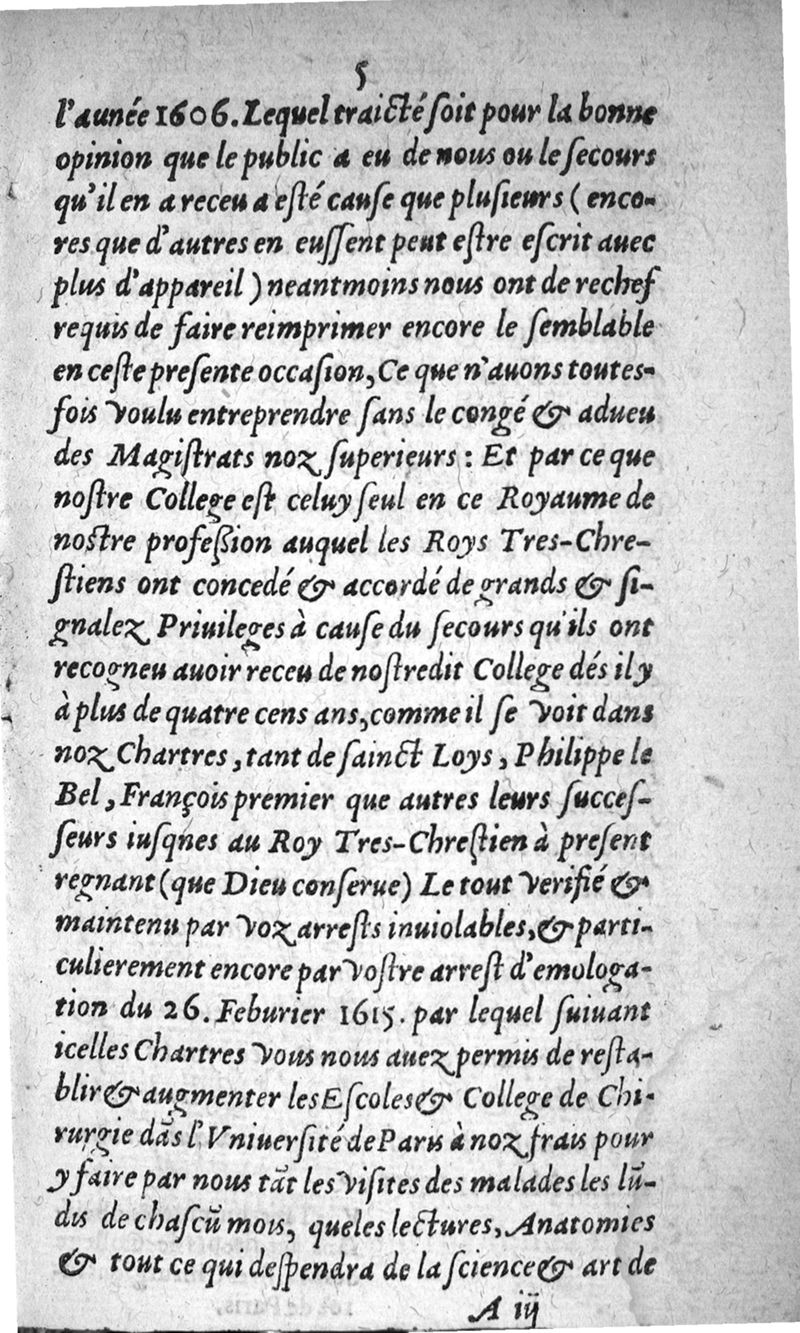 5
l'aunée 1606. Lequel traicté ſoit pour la bonne
opinion que le public a eu de nous ou le ſecours
qu'il en a receu a eſté cauſe que pluſieurs ( enco-
res que d'autres en euſſent peut eſtre eſcrit auec
plus d'appareil ) neantmoins nous ont de rechef
requis de faire reimprimer encore le ſemblable
en ceſte preſente occaſion, Ce que n'auons toutes-
fois voulu entreprendre ſans le congé & adueu
des Magiſtrats noz ſuperieurs : Et par ce que
noſtre College eſt celuy ſeul en ce Royaume de
noſtre profeßion auquel les Roys Tres-Chre-
ſtiens ont concedé & accordé de grands & ſi-
gnalez Priuileges à cauſe du ſecours qu'ils ont
recogneu auoir receu de noſtredit College dés il y
à plus de quatre cens ans, comme il ſe voit dans
noz Chartres, tant de ſainct Loys, Philippe le
Bel, François premier que autres leurs ſucceſ-
ſeurs iuſqnes au Roy Tres-Chreſtien à preſent
regnant (que Dieu conſerue) Le tout verifié &
maintenu par voz arreſts inuiolables, & parti-
culierement encore par voſtre arreſt d'emologa-
tion du 26. Feburier 1615. par lequel ſuiuant
icelles Chartres vous nous auez permis de reſta-
blir & augmenter les Eſcoles & College de Chi-
rurgie dãs l'Vniuerſité de Paris à noz frais pour
y faire par nous tãt les viſites des malades les lũ-
dis de chaſcũ mois, que les lectures, Anatomies
& tout ce qui deſpendra de la ſcience & art de
A iij